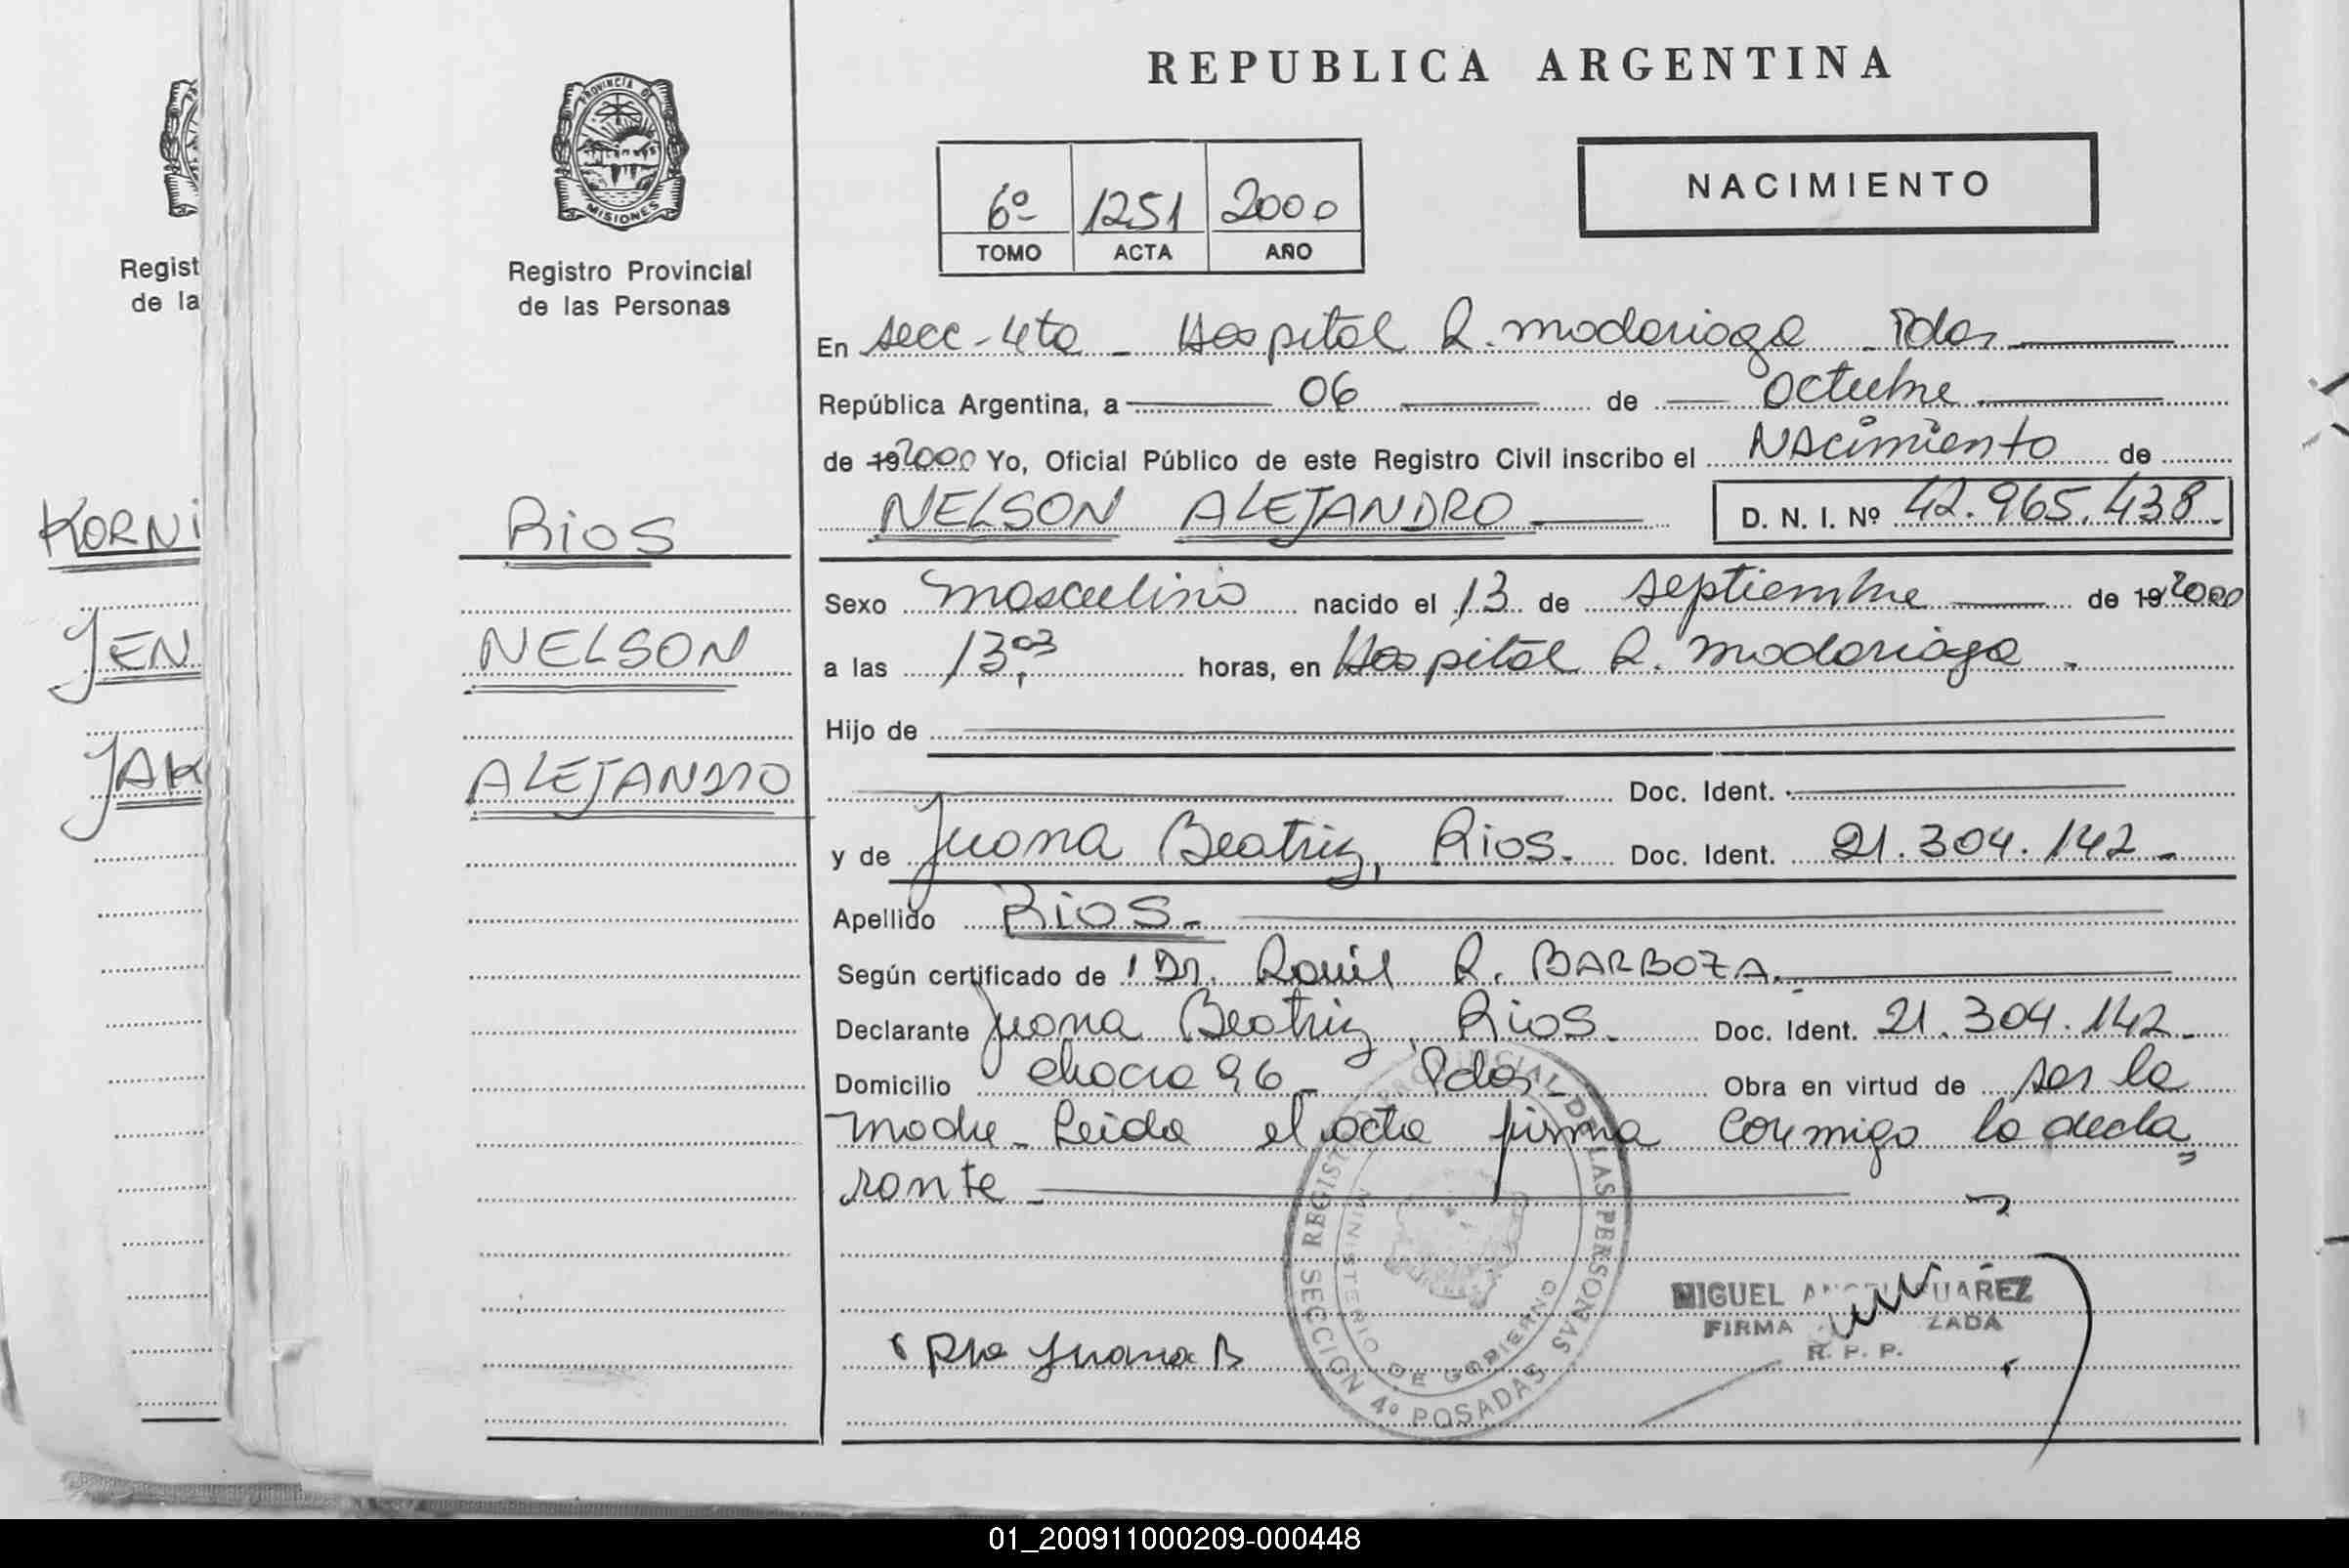 REPUBLICA ARGENTINA
PROVINCIA DE
MISIONES
Registro Provincial
de las Personas
Regist
de la
KORNI
JEN
JAK
RIOS
NELSON
ALEJANDRO
6º 1251 2000
TOMO ACTA AÑO
NACIMIENTO
En secc-4ta - Hospital R. Madariaga - Pdas
República Argentina, a 06 de octubre
de 192000 Yo, Oficial Público de este Registro Civil inscribo el NAcimiento de
NELSON ALEJANDRO D. N. I. Nº 42.965.438-
Sexo masculino nacido el 13 de septiembre de 192000
a las 13,03 horas, en Hospital R. Madariaga.
Hijo de
Doc. Ident.
y de Juana Beatriz, Rios. Doc. Ident. 21.304.142-
Apellido RIOS-
Según certificado de Dr. Raúl R. BARBOZA.
Declarante Juana Beatriz, Rios. Doc. Ident. 21.304.142-
Domicilio chacra 96- Pdas Obra en virtud de ser la
madre- Leida el acta firma conmigo la decla
rante-
REGISTRO PROVINCIAL DE LAS PERSONAS
MINISTERIO DE GOBIERNO
SECCION 4º POSADAS
MIGUEL SUAREZ
FIRMA
R. P. P.
Juana B
01_200911000209-000448